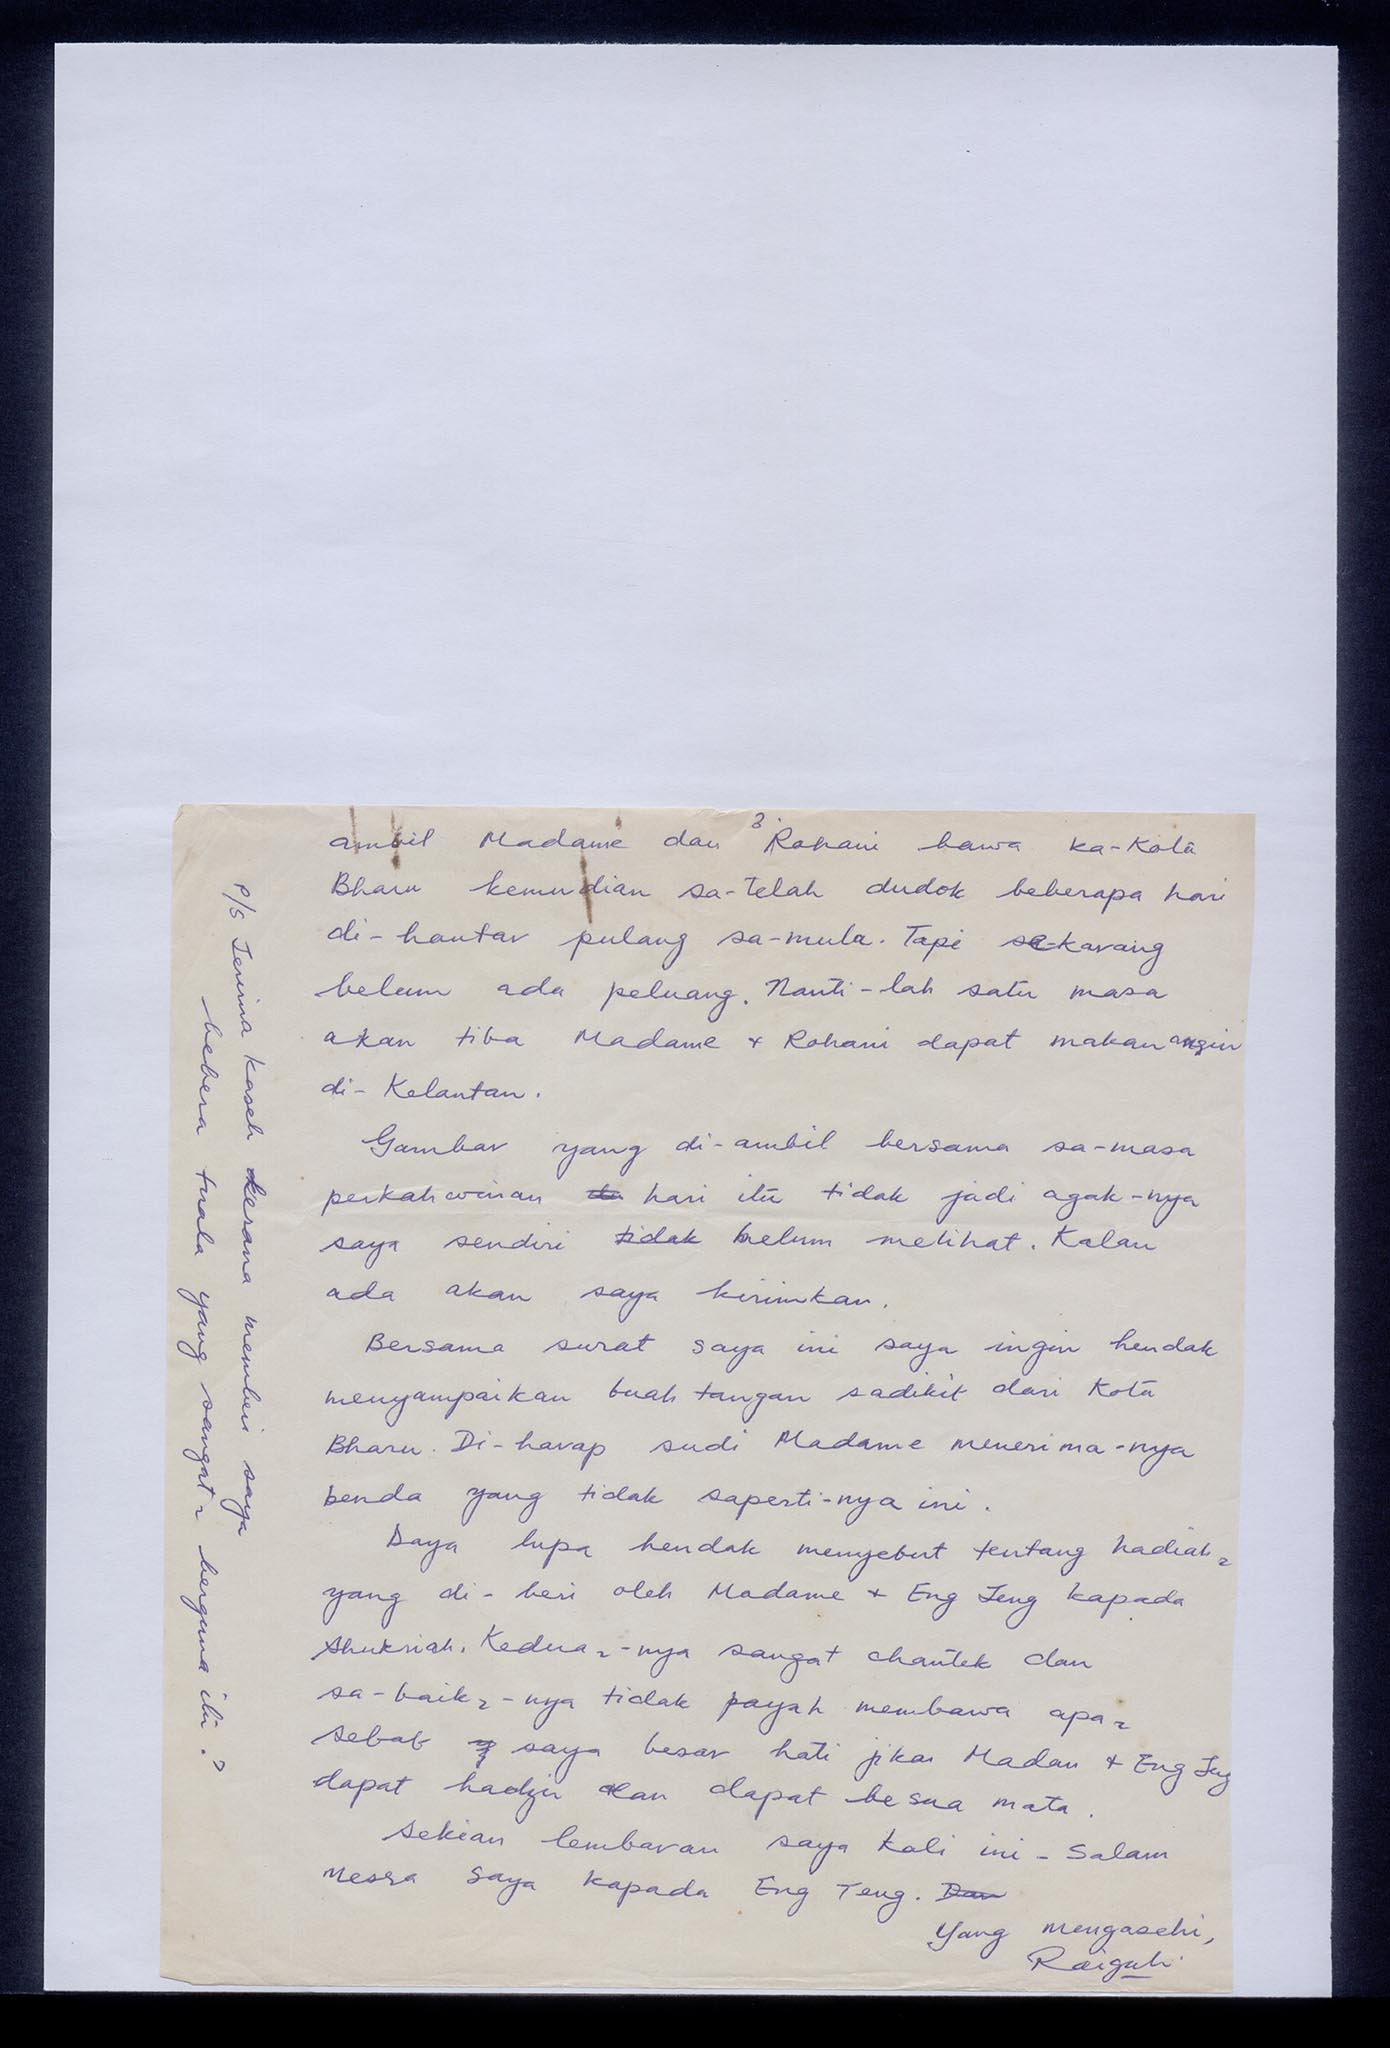 3.
ambil Madame dan Rohani bawa ka-Kota
Bharu kemudian sa-telah dudok beberapa hari
di-hantar pulang sa-mula. Tapi se-karang
belum ada peluang. Nanti-lah satu masa
akan tiba Madame + Rohani dapat makan angin
di-Kelantan.
Gambar yang di-ambil bersama sa-masa
perkahwinan itu hari itu tidak jadi agak-nya
saya sendiri tidak belum melihat. Kalau
ada akan saya kirimkan.
Bersama surat saya ini saya ingin hendak
menyampaikan buah tangan sadikit dari Kota
Bharu. Di-harap sudi Madame menerima-nya
benda yang tidak saperti-nya ini.
Saya lupa hendak menyebut tentang hadiah2
yang di-beri oleh Madame + Eng Teng kapada
Shukriah. Kedua2-nya sangat chantek dan
sa-baik2-nya tidak payah membawa apa2
sebab y saya besar hati jika Madam + Eng Teng
dapat hadzir dan dapat besua mata.
Sekian lembaran saya kali ini - Salam
mesra saya kapada Eng Teng. Dan
Yang mengasehi,
P/S Terima kaseh kerana memberi saya
bebera tuala yang sangat2 berguna itu.